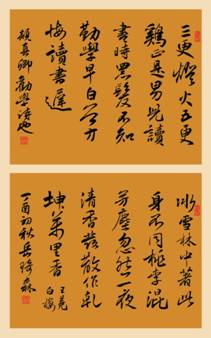 三更燈火五更
鷄正是男兒讀
書時黑髮不知
勤學早白首方
悔讀書遲
顏真卿勸學詩
冰雪林中著此
身不同桃李混
芳塵忽然一夜
清香發散作乾
坤萬里 王冕
白梅
丁酉初秋岳